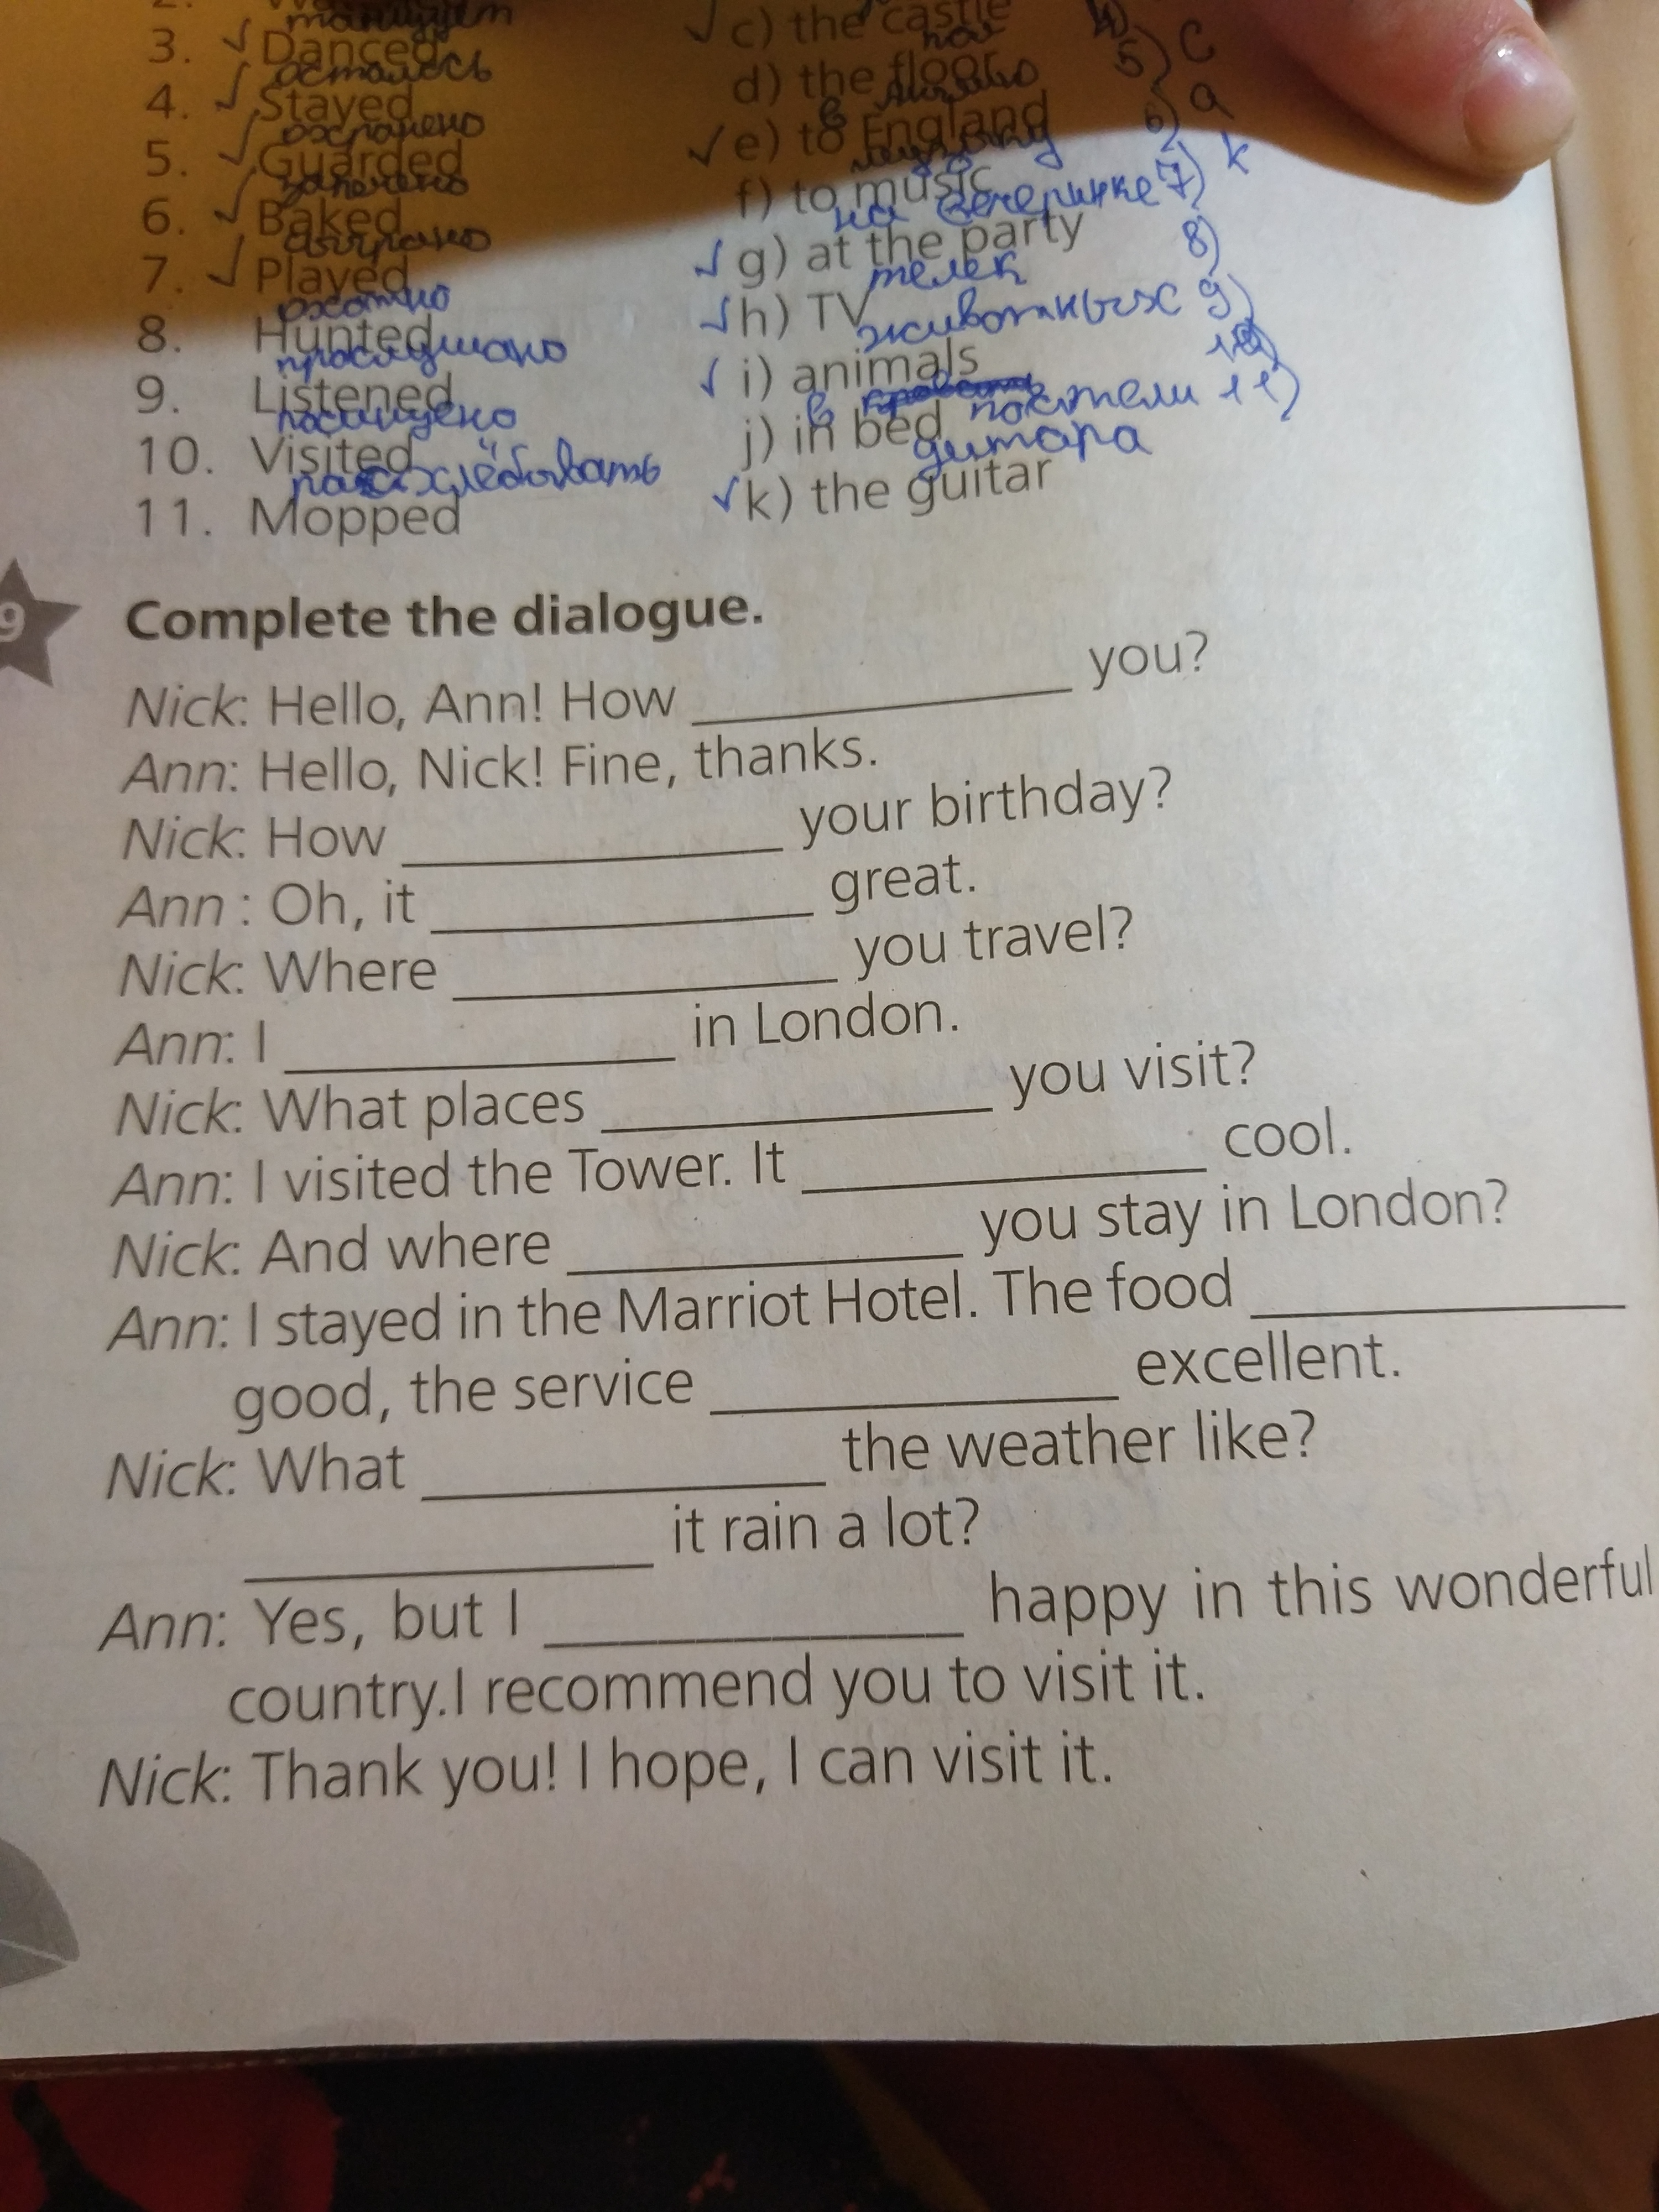 2.
танцуем
3. Danced
осталось
4. Stayed
охранено
5. Guarded
запечено
6. Baked
сыграно
7. Played
охотно
8. Hunted
прослушано
9. Listened
посищено
10. Visited
11. Mopped
c) the castle
пол
d) the floor
в Англию
e) to England
музыку
f) to music
на вечеринке
g) at the party
телек
h) TV
животных
i) animals
в постели
j) in bed
гитара
k) the guitar
5) c
6) a
7) k
8)
9)
10)
11)
9
Complete the dialogue.
Nick: Hello, Ann! How ________ you?
Ann: Hello, Nick! Fine, thanks.
Nick: How ________ your birthday?
Ann : Oh, it ________ great.
Nick: Where ________ you travel?
Ann: I ________ in London.
Nick: What places ________ you visit?
Ann: I visited the Tower. It ________ cool.
Nick: And where ________ you stay in London?
Ann: I stayed in the Marriot Hotel. The food ________
good, the service ________ excellent.
Nick: What ________ the weather like?
________ it rain a lot?
Ann: Yes, but I ________ happy in this wonderful
country.I recommend you to visit it.
Nick: Thank you! I hope, I can visit it.